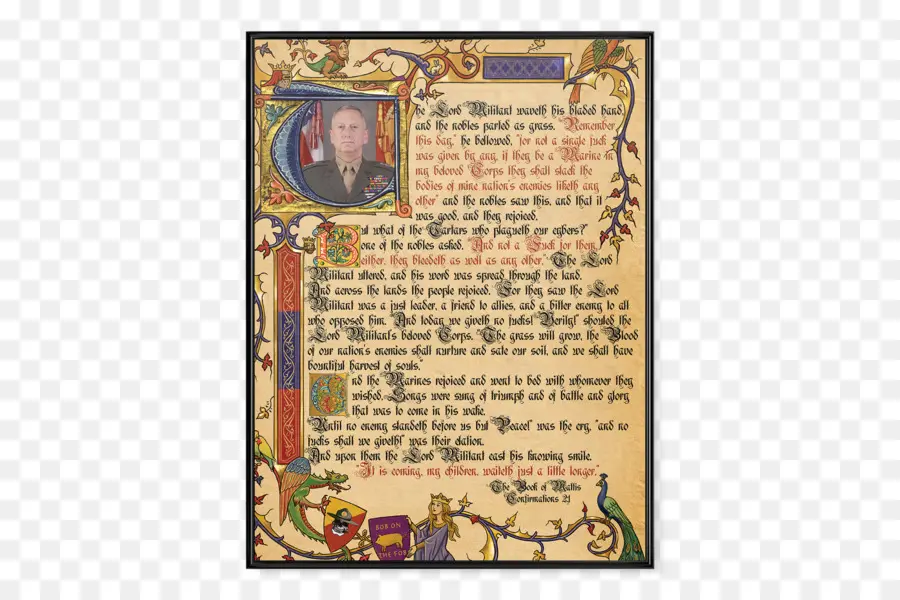 The Lord Militant waveth his bladed hand,
and the nobles parted as grass. "Remember
this day," he bellowed, "for not a single fuck
was given by any, if they be a Marine in
my beloved Corps they shall stack the
bodies of mine nation's enemies liketh any
other" and the nobles saw this, and that it
was good, and they rejoiced.
But what of the Tartars who plagueth our cybers?"
one of the nobles asked. "And not a Fuck for them
either, they bleedeth as well as any other." The Lord
Militant uttered, and his word was spread through the land.
And across the lands the people rejoiced. For they saw the Lord
Militant was a just leader, a friend to allies, and a bitter enemy to all
who opposed him. "And today we giveth no fucks! Verily!" shouted the
Lord Militant's beloved Corps. "The grass will grow, the Blood
of our nation's enemies shall nurture and sate our soil, and we shall have
bountiful harvest of souls."
And the Marines rejoiced and went to bed with whomever they
wished. Songs were sung of triumph and of battle and glory
that was to come in his wake.
"Until no enemy standeth before us but Peace!" was the cry, "and no
fucks shall we giveth!" was their elation.
And upon them the Lord Militant cast his knowing smile.
"It is coming, my children, waiteth just a little longer."
The Book of Mattis
Confirmations 21
BOB ON
THE FOB